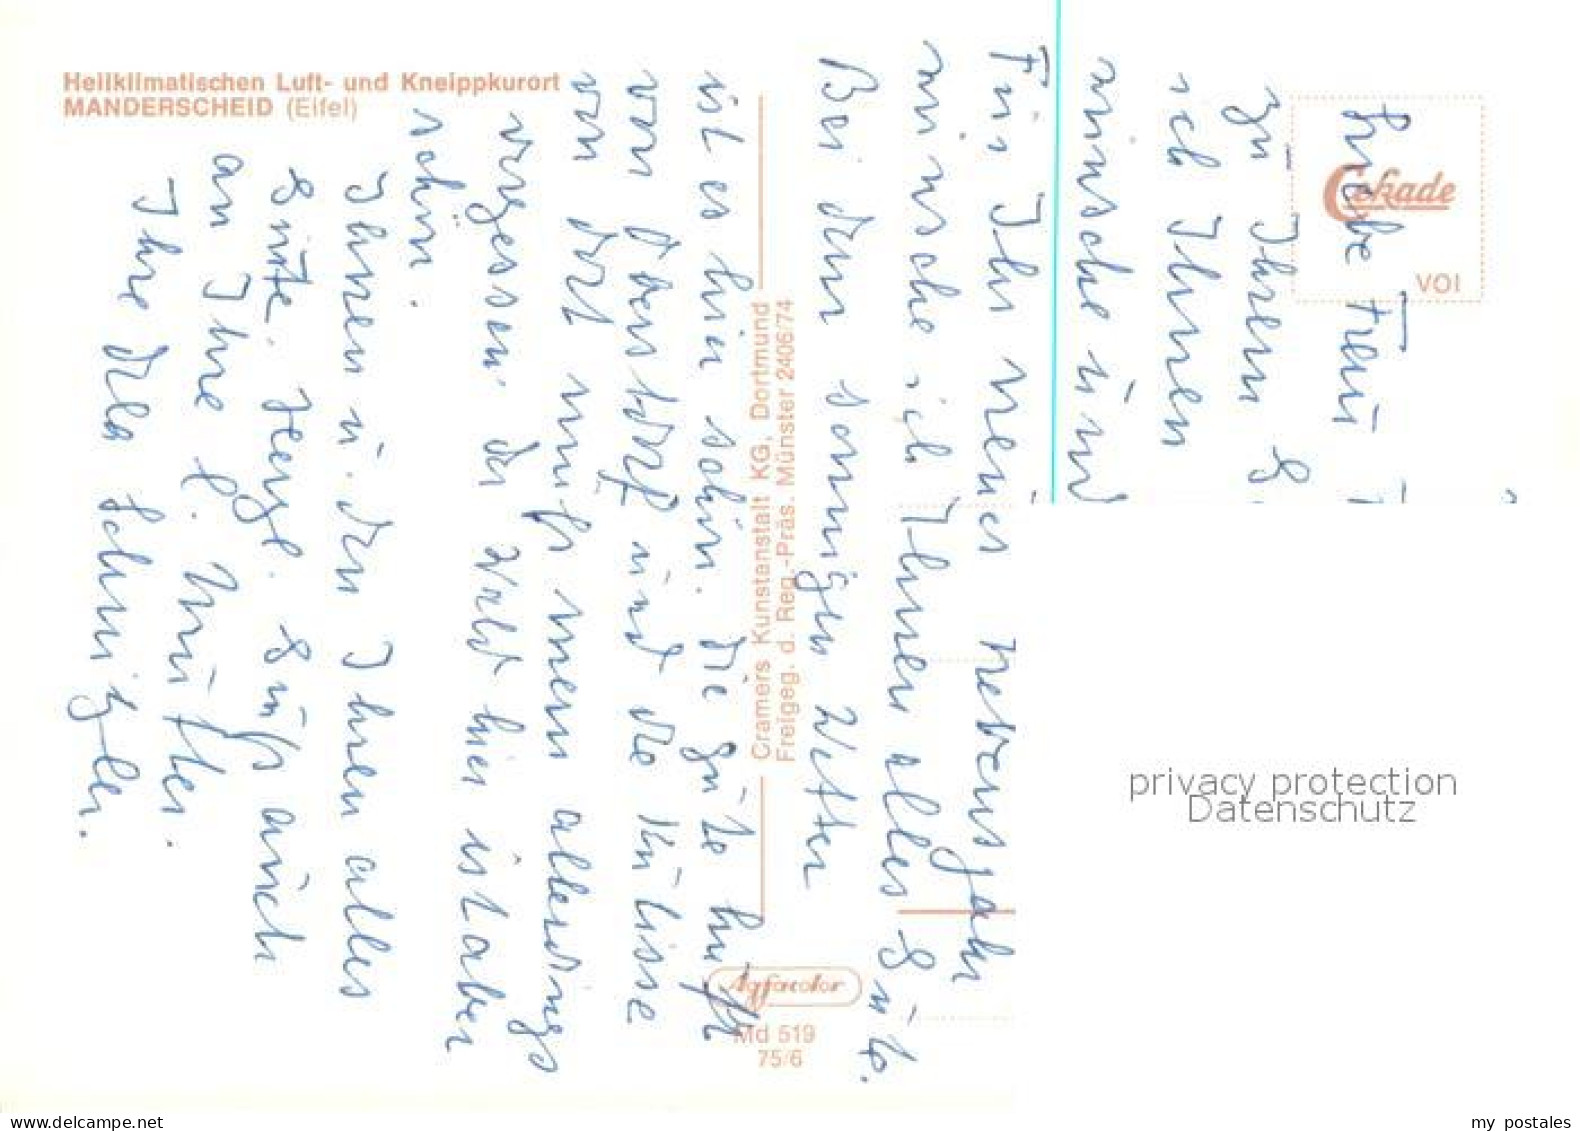 Heilklimatischen Luft- und Kneippkurort
MANDERSCHEID (Eifel)
Cekade
VOI
Liebe Frau
zu Ihrem G
ich Ihnen
wünsche und
Für Ihr neues Lebensjahr
wünsche ich Ihnen alles Gute.
Bei dem sonnigen Wetter
ist es hier schön. Die gute Luft
von und die Kulisse
von dort muß man allerdings
vergessen. der Wald hier ist aber
schön.
Ihnen u. den Ihren alles
Gute. Gruß auch
an Ihre l. Mutter.
Ihre
Cramers Kunstanstalt KG, Dortmund
Freigeg. d. Reg.-Präs. Münster 2406/74
Agfacolor
Md 519
75/6
privacy protection
Datenschutz
www.delcampe.net
my postales